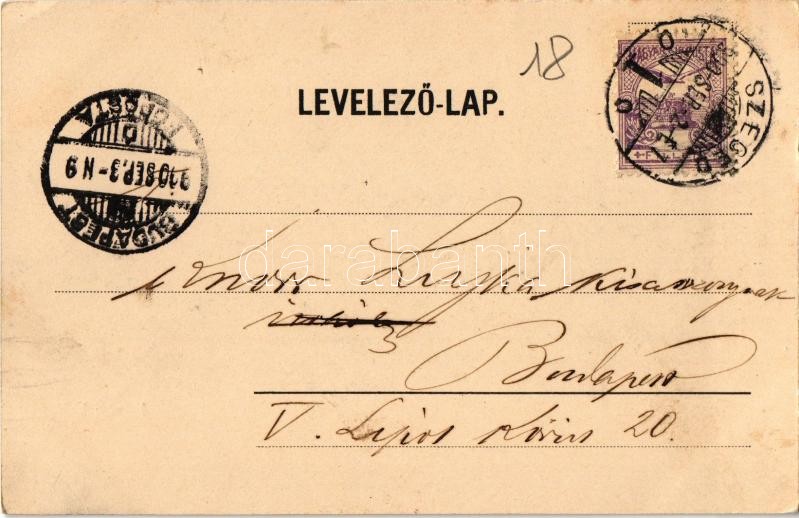 18
LEVELEZŐ-LAP.
SZEGED
BUDAPEST
FŐPOSTA
900 SEP. 3 - N 9
darabanth
Knorr Lujza kisasszonynak
Budapest
V. Lipót Körút 20.